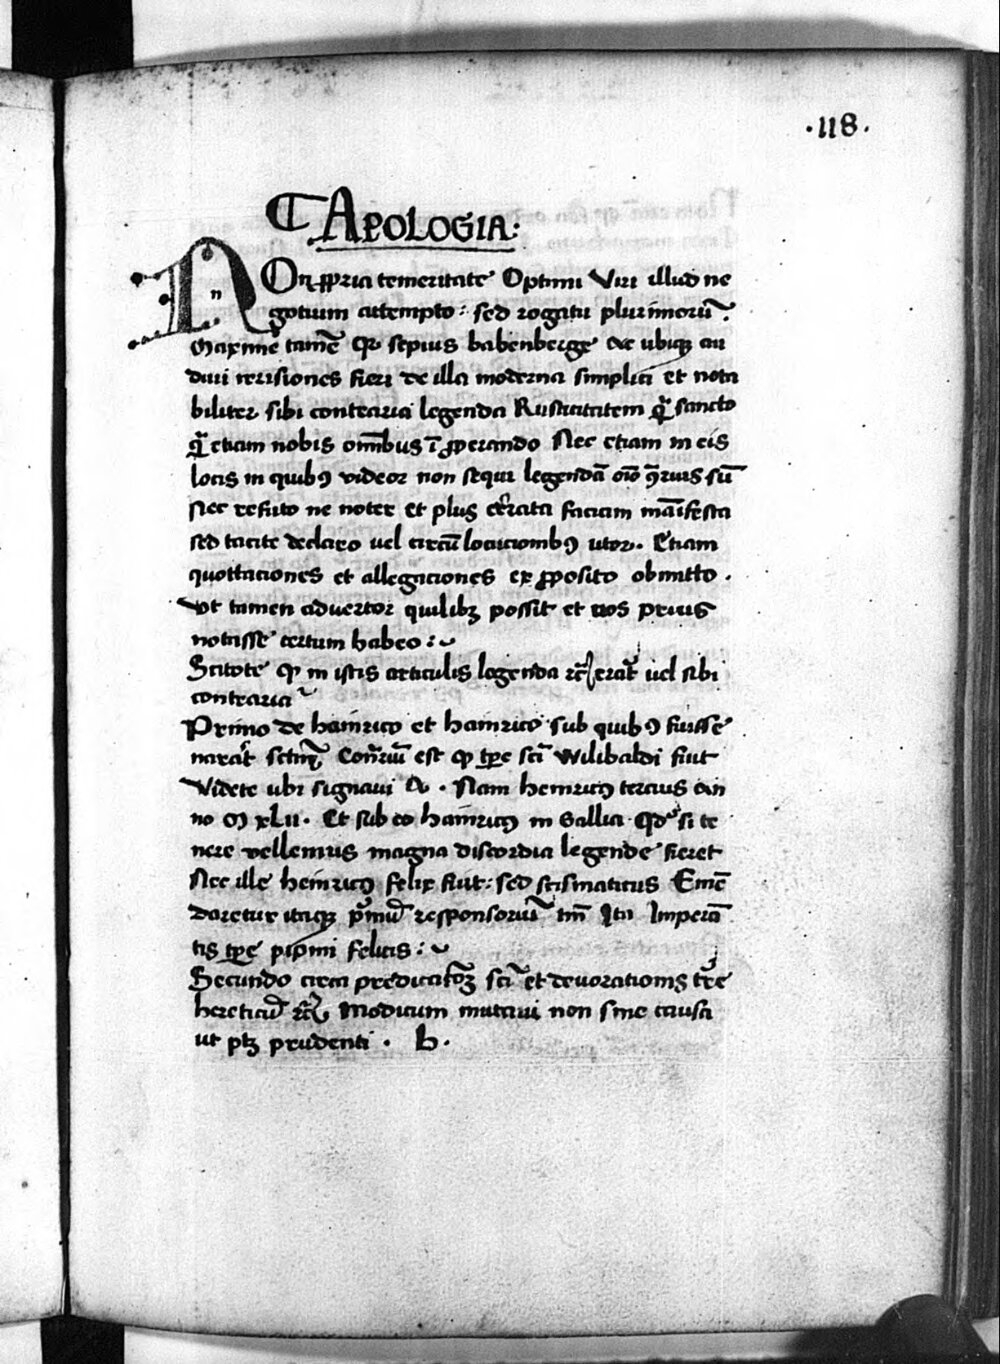 ·118.
APOLOGIA:
NOn ꝓpria temeritate Optimi Viri illud ne
gotium attempto: sed rogatu plurimorū.
Maxime tamē Qꝛ sepius babenberge ac ubiqꝫ au
diui rerisiones fieri de illa moderna simplici et nota
biliter sibi contraria legenda Rusticitatem qꝫ sancto
etiam nobis omībus īꝓperando Nec etiam in eis
locis in quibꝰ videor non sequi legendā oīo sū
Nec refuto ne noter et plus faciam māifesta
sed tacite declaro uel circūlocucionibꝰ utor. Etiam
quottaciones et allegaciones ex ꝓposito obmitto.
Vt tamen aduertor quilibꝫ possit et uos prius
notasse certum habeo:~
Scitote ꝙ in istis articulis legenda uel sibi
contraria
Primo de hainrico et hainrico sub quibꝰ fuisse
est ꝙ tp̄e scī Wilibaldi fuit
Videte ubi signaui a. Nam heinricꝰ tercius an
no M xLii. Et sub eo hainricꝰ in Gallia Qd si te
nere vellemus magna discordia legende fieret
Nec ille heinricꝰ felix fuit: sed scismaticus Emē
daretur itaqꝫ responsoriū tm̄ Ita Imperā
tis tp̄e primi felicis:~
Secundo circa scī et deuorationis tr̄e
Modicum mutaui non sine causa
ut ptꝫ prudenti. b.